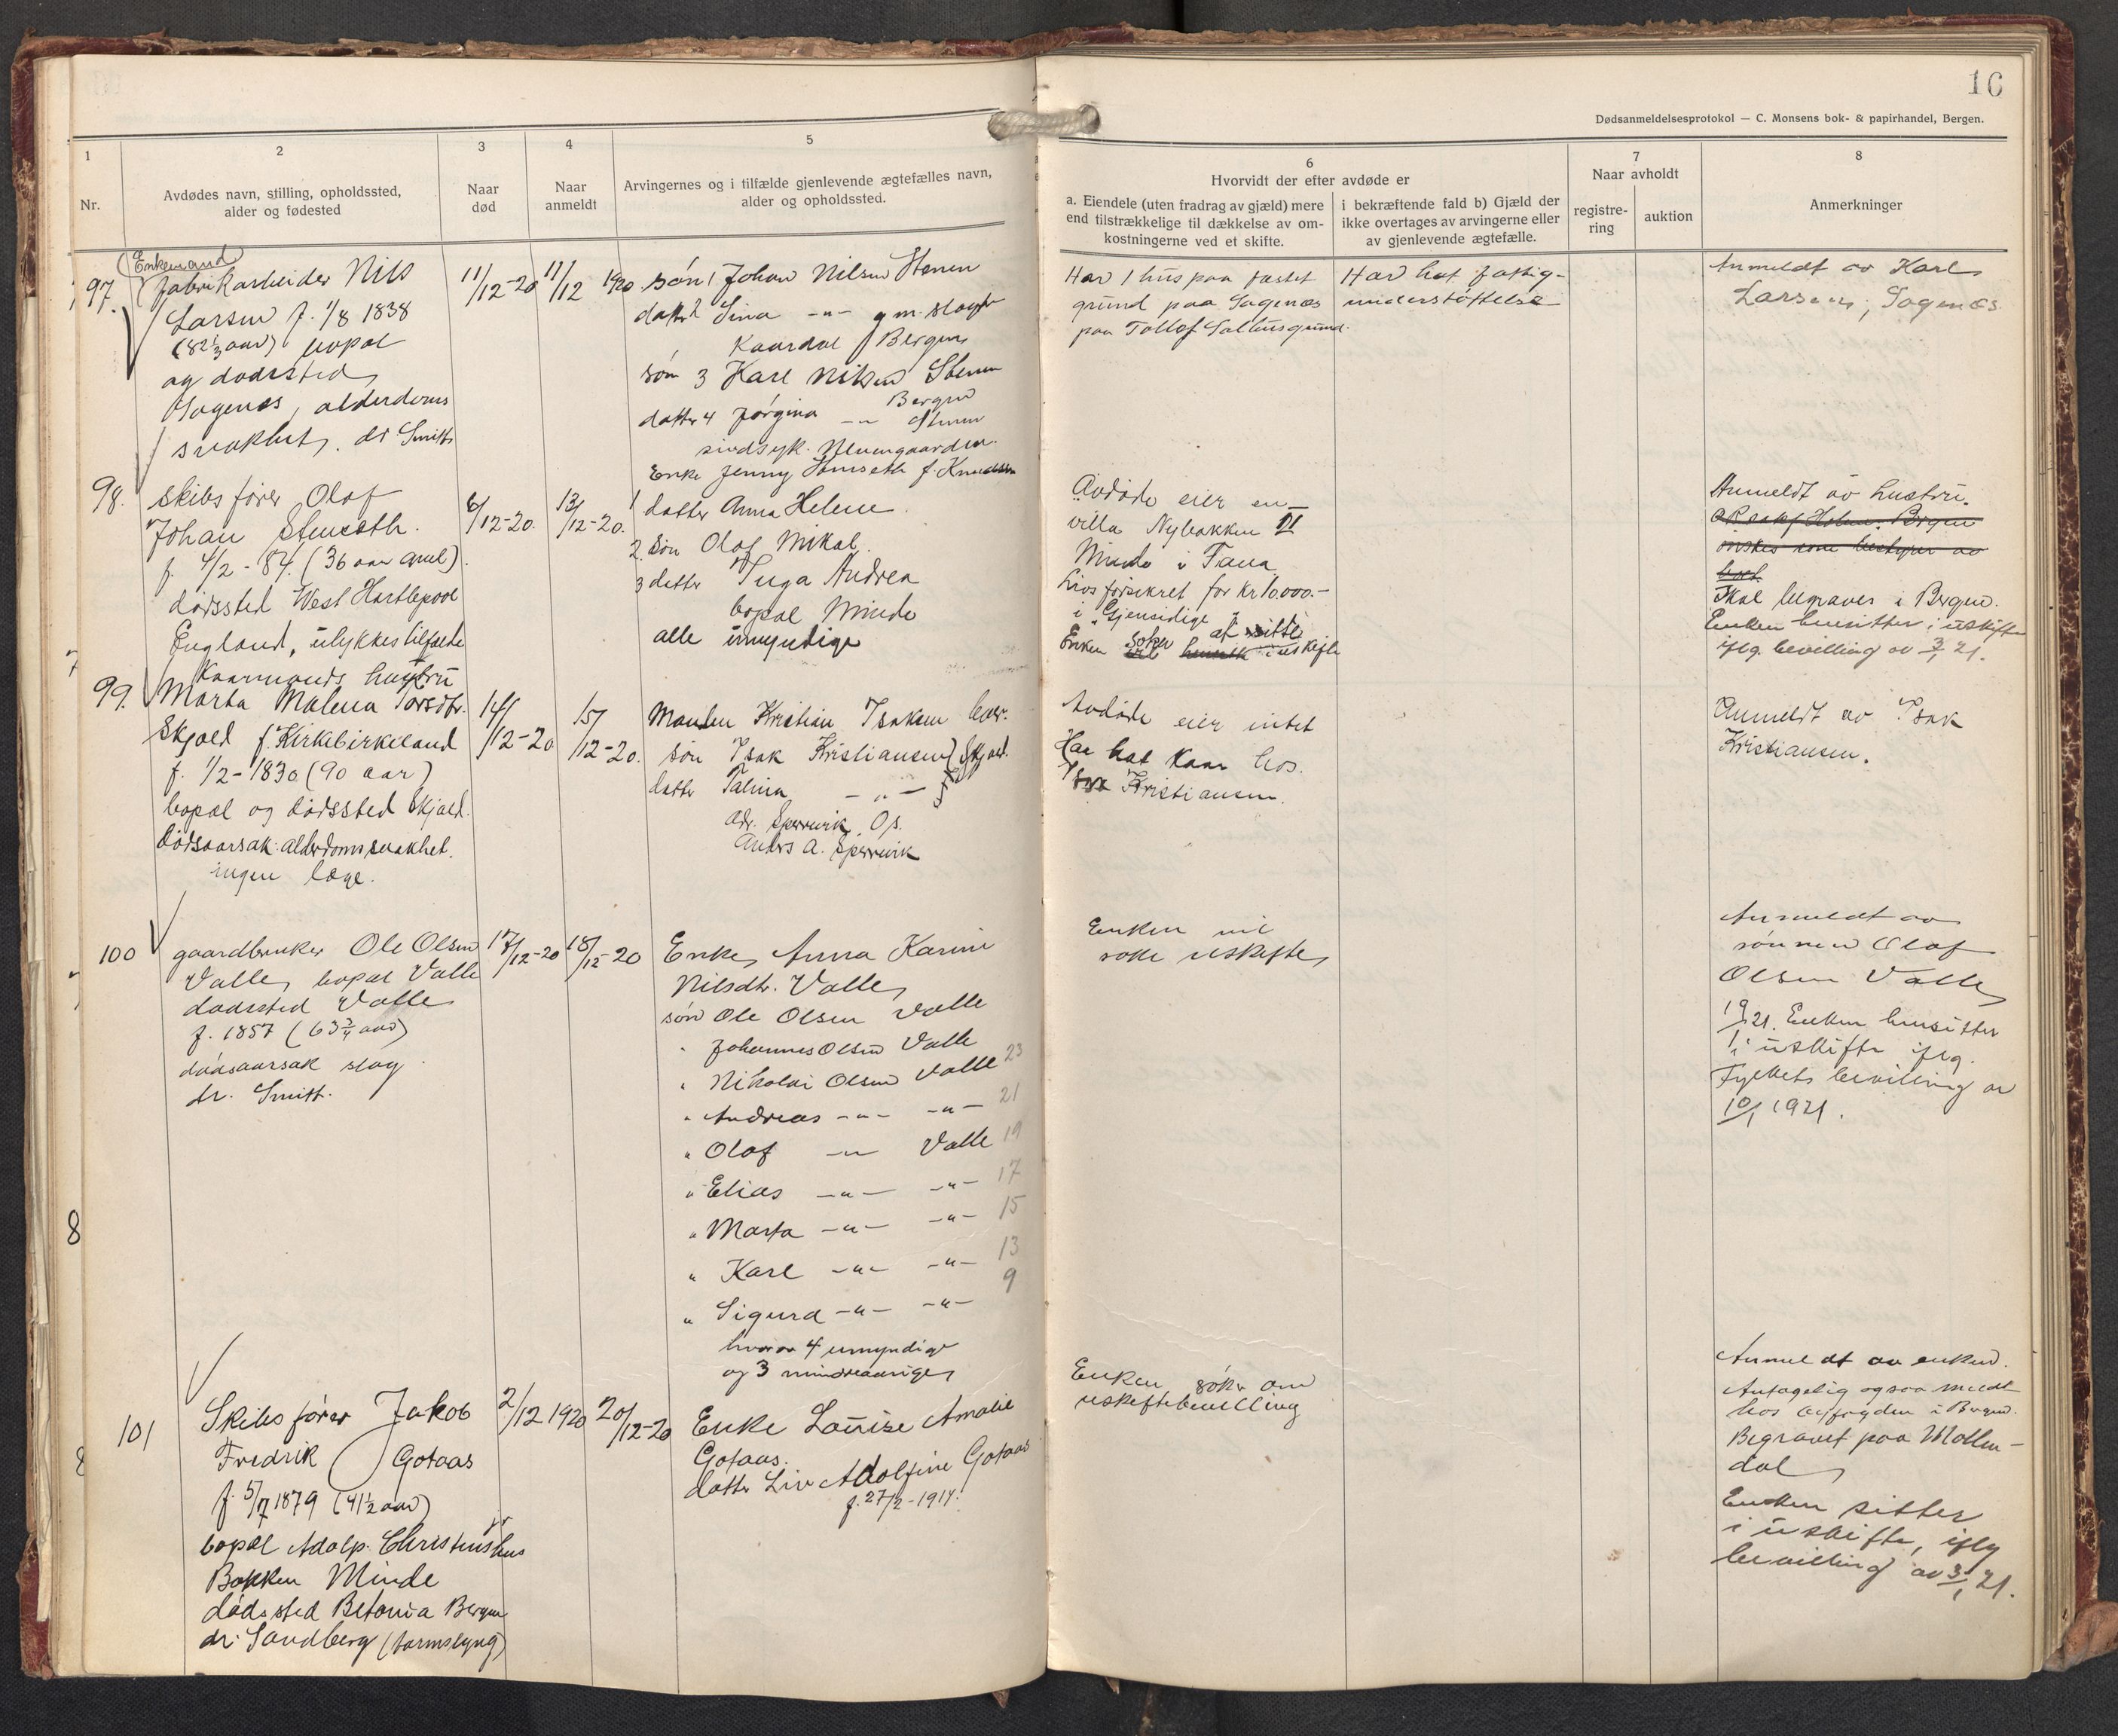 16
Dødsanmeldelsesprotokol — C. Monsens bok- & papirhandel, Bergen.
1
Nr.
2
Avdødes navn, stilling, opholdssted,
alder og fødested
3
Naar
død
4
Naar
anmeldt
5
Arvingernes og i tilfælde gjenlevende ægtefælles navn,
alder og opholdssted.
6
Hvorvidt der efter avdøde er
a. Eiendele (uten fradrag av gjæld) mere
end tilstrækkelige til dækkelse av om-
kostningerne ved et skifte.
i bekræftende fald b) Gjæld der
ikke overtages av arvingerne eller
av gjenlevende ægtefælle.
7
Naar avholdt
registre-
ring
auktion
8
Anmerkninger
97.
Enkemand
fabrikarbeider Nils
Larsen f. 1/8 1838
(82 1/3 aar) bopæl
og dødssted
Søgenæs, alderdoms
svakhet, dr Smitt
11/12-20
11/12 1920
søn 1 Johan Nilsen Stenen
datt 2 Sina -"- g.m. slagter
Kaardal Bergen
søn 3 Karl Nilsen Stenen
Bergen
datter 4 Jørgina -"- Stenen
sindsyk. Neevengaarden.
Har 1 hus paa fæstet
grund paa Søgenæs
paa Tollof Salhusgrund.
Har hat fattig-
understøttelse
Anmeldt av Karl
Larsen, Søgenæs.
98.
skibsfører Olaf
Johan Stenseth.
f. 4/2-84. (36 aar gml)
dødssted West Hartlepool
England, ulykkestilfælde
6/12-20.
13/12-20.
Enke Jenny Stenseth f. Knudsen
1 datter Anna Helene.
2. søn Olaf Mikal.
3 datter Inga Andrea
bopæl Minde
alle umyndige
Avdøde eier en
villa Nybakken VI
Minde i Fana
Livsforsikret for kr 10.000.-
i "Gjensidige"
Enken søker at sitte i uskifte
Anmeldt av hustru.
O.R.sakf. Holm. Bergen
ønskes som bestyrer av
boet.
Skal begraves i Bergen.
Enken hensitter i uskifte
iflg. bevilling av 3/1 21.
99.
Kaarmands hustru
Marta Malena Torsdtr.
Skjold f. Kirkebirkeland
f. 1/2-1830 (90 aar)
bopæl og dødssted Skjold.
dødsaarsak: alderdomssvakhet.
ingen læge.
14/12-20
15/12-20.
Manden Kristian Isaksen kaar.
søn Isak Kristiansen Skjold.
datter Talina -"-
adr. Sperrevik, Os.
Anders A. Sperrevik
Avdøde eier intet
Har hat kaar hos.
Isak Kristiansen.
Anmeldt av Isak
Kristiansen.
100
gaardbruker Ole Olsen
Valle, bopæl Valle
dødssted Valle
f. 1857 (63 3/4 aar)
dødsaarsak slag
dr. Smitt.
17/12-20
18/12-20
Enke, Anna Karine
Nilsdtr. Valle,
søn Ole Olsen Valle
" Johannes Olsen Valle
" Nikolai Olsen Valle 23
" Andreas -"- -"- 21
" Olaf -"- Valle 19
" Elias -"- -"- 17
" Marta -"- -"- 15
" Karl -"- -"- 13
" Sigurd -"- -"- 9
hvorav 4 umyndige
og 3 mindreaarige
Enken vil
søke uskifte,
Anmeldt av
sønnen Olaf
Olsen Valle
19/1 21. Enken hensitter
i uskifte iflg.
Fylkets bevilling av
10/1 1921.
101
Skibsfører Jakob
Fredrik Gotaas
f. 5/7 1879 (41 1/2 aar)
bopæl Adolp. Christensens hus
Bakken Minde
dødssted Betania Bergen
dr. Sandberg (tarmslyng)
2/12 1920
20/12-20
Enke Louise Amalie
Gotaas.
datter Liv Adolfine Gotaas
f. 27/2-1914.
Enken søker om
uskiftebevilling
Anmeldt av enken.
Antagelig ogsaa meldt
hos byfogden i Bergen.
Begravet paa Møllen-
dal
Enken sitter
i uskifte, iflg
bevilling av 3/1 21.
8
8